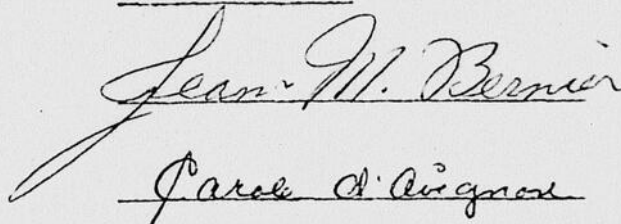 Jean M. Bernier
Carole d'Avignon